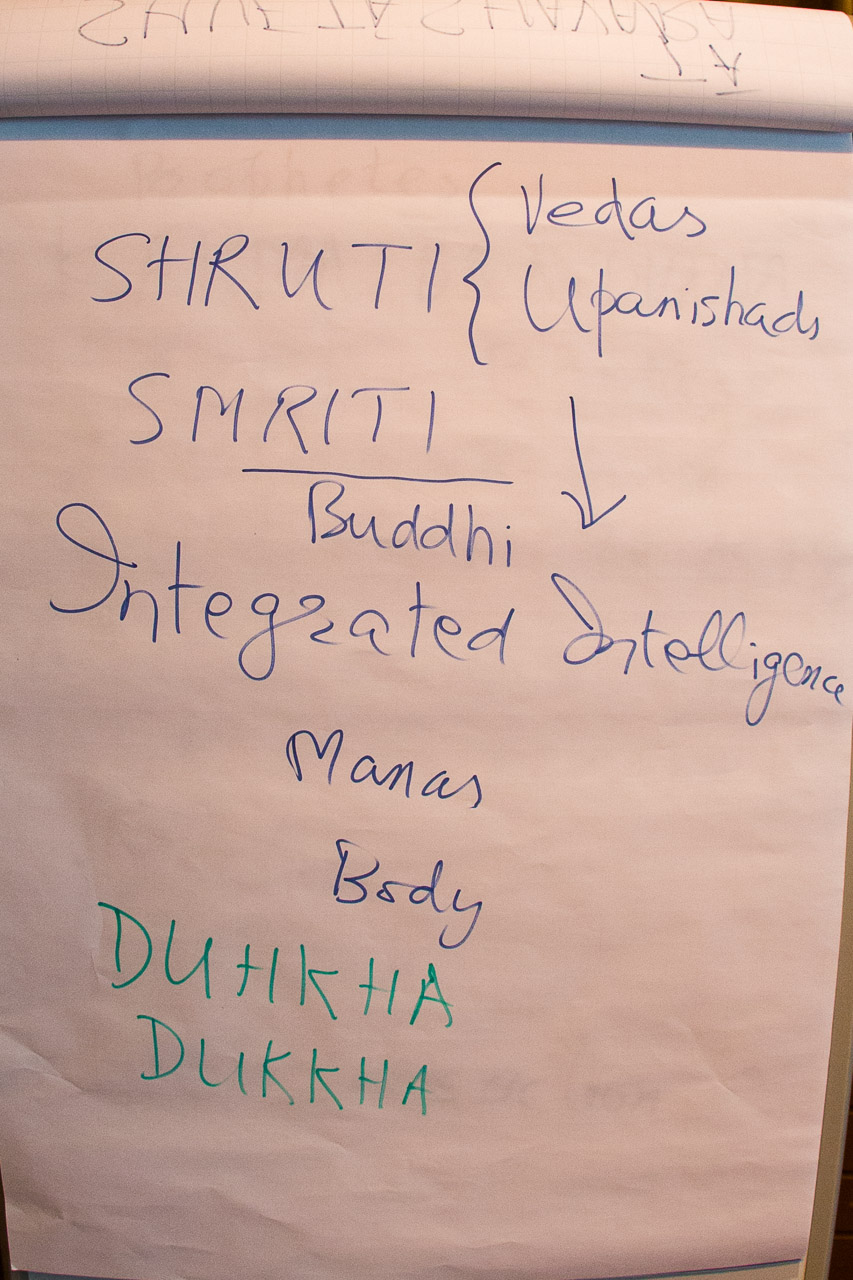 SHRUTI { Vedas
Upanishads
SMRITI
Buddhi
Integrated Intelligence
Manas
Body
DUHKHA
DUKKHA